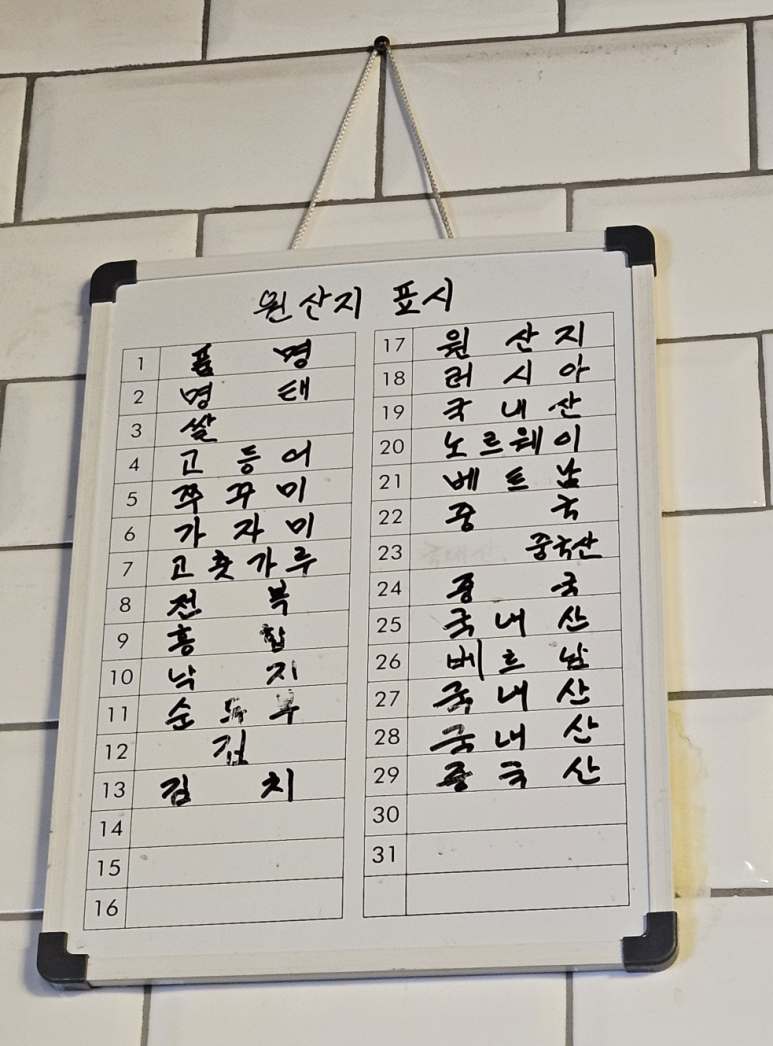 원산지 표시
1 품명 17 원산지
2 명태 18 러시아
3 쌀 19 국내산
4 고등어 20 노르웨이
5 쭈꾸미 21 베트남
6 가자미 22 중국
7 고춧가루 23 중국산
8 전복 24 중국
9 홍합 25 국내산
10 낙지 26 베트남
11 순두부 27 국내산
12 김 28 국내산
13 김치 29 중국산
14 30
15 31
16